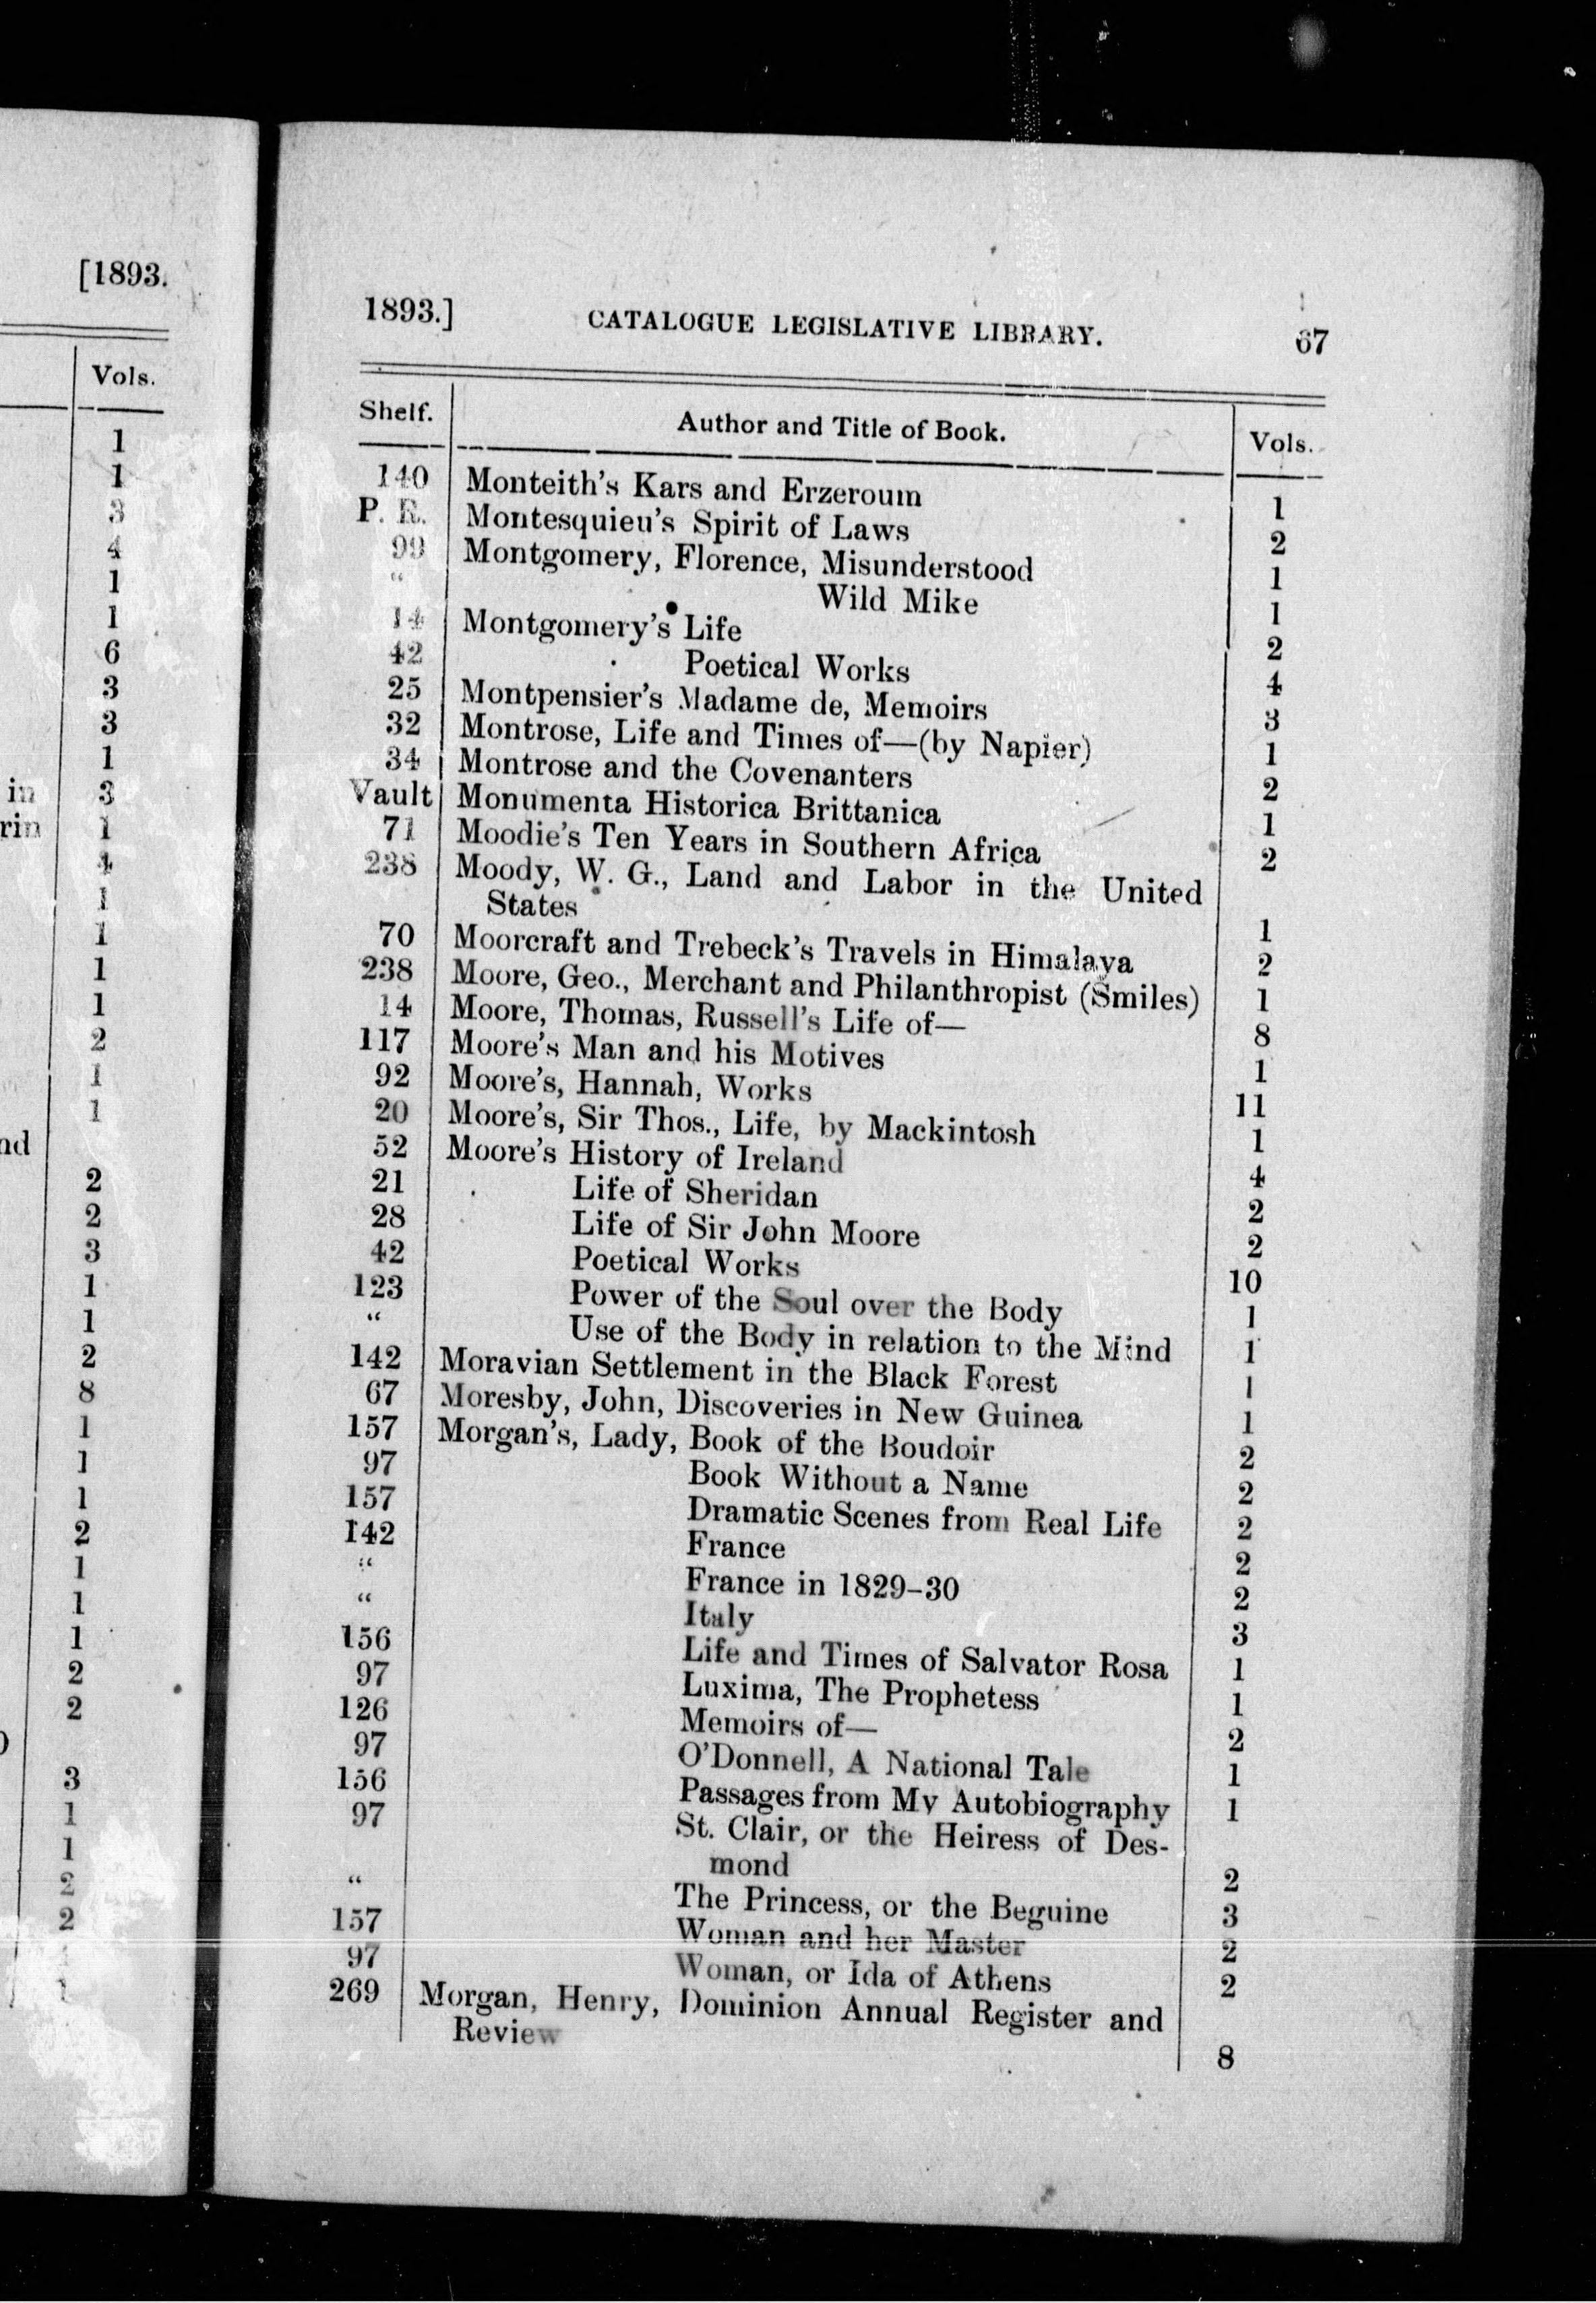 [1893.
Vols.
1
1
3
4
1
1
6
3
3
1
in 3
rin 1
4
1
1
1
1
2
1
1
nd
2
2
3
1
1
2
8
1
1
1
2
1
1
1
2
2
3
1
1
2
2
1
1893.] CATALOGUE LEGISLATIVE LIBRARY. 67
Shelf. Author and Title of Book. Vols.
140 Monteith's Kars and Erzeroum 1
P. R. Montesquieu's Spirit of Laws 2
99 Montgomery, Florence, Misunderstood 1
" Wild Mike 1
14 Montgomery's Life 2
42 Poetical Works 4
25 Montpensier's Madame de, Memoirs 3
32 Montrose, Life and Times of—(by Napier) 1
34 Montrose and the Covenanters 2
Vault Monumenta Historica Brittanica 1
71 Moodie's Ten Years in Southern Africa 2
238 Moody, W. G., Land and Labor in the United
States 1
70 Moorcraft and Trebeck's Travels in Himalaya 2
238 Moore, Geo., Merchant and Philanthropist (Smiles) 1
14 Moore, Thomas, Russell's Life of— 8
117 Moore's Man and his Motives 1
92 Moore's, Hannah, Works 11
20 Moore's, Sir Thos., Life, by Mackintosh 1
52 Moore's History of Ireland 4
21 Life of Sheridan 2
28 Life of Sir John Moore 2
42 Poetical Works 10
123 Power of the Soul over the Body 1
" Use of the Body in relation to the Mind 1
142 Moravian Settlement in the Black Forest 1
67 Moresby, John, Discoveries in New Guinea 1
157 Morgan's, Lady, Book of the Boudoir 2
97 Book Without a Name 2
157 Dramatic Scenes from Real Life 2
142 France 2
" France in 1829-30 2
" Italy 3
156 Life and Times of Salvator Rosa 1
97 Luxima, The Prophetess 1
126 Memoirs of— 2
97 O'Donnell, A National Tale 1
156 Passages from My Autobiography 1
97 St. Clair, or the Heiress of Des-
mond 2
" The Princess, or the Beguine 3
157 Woman and her Master 2
97 Woman, or Ida of Athens 2
269 Morgan, Henry, Dominion Annual Register and
Review 8